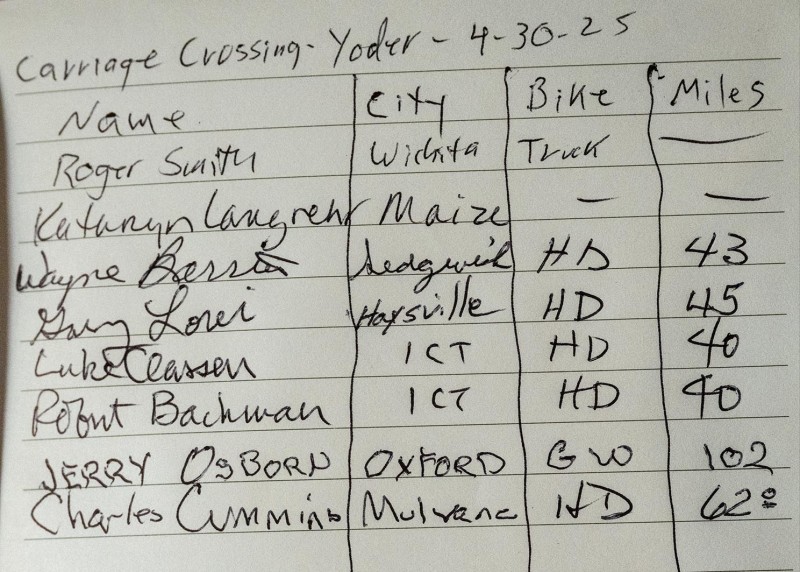 Carriage Crossing - Yoder - 4-30-25
Name City Bike Miles
Roger Smith Wichita Truck —
Kathryn Langrehr Maize — —
Wayne Sedgwick HD 43
Gary Lorei Haysville HD 45
Luke Classen ICT HD 40
Robert Bachman ICT HD 40
JERRY OSBORN OXFORD GW 102
Charles Cummins Mulvane HD 62